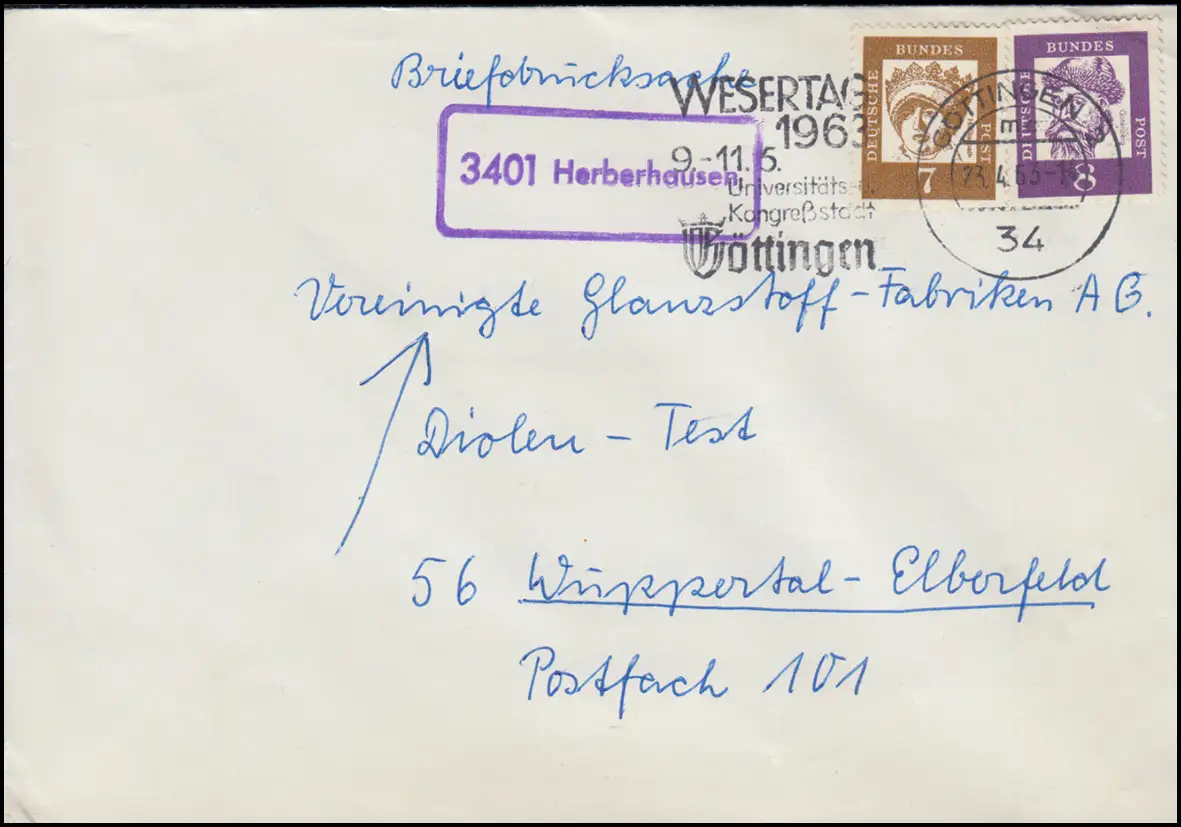 Briefdrucksache
WESERTAG
1963
9.-11.5.
Universitäts-u.
Kongreßstadt
Göttingen
3401 Herberhausen
DEUTSCHE BUNDES POST
7
DEUTSCHE BUNDES POST
Gutenberg
8
GÖTTINGEN
m
23.4.63-
34
Vereinigte Glanzstoff-Fabriken AG.
Diolen - Test
56 Wuppertal-Elberfeld
Postfach 101